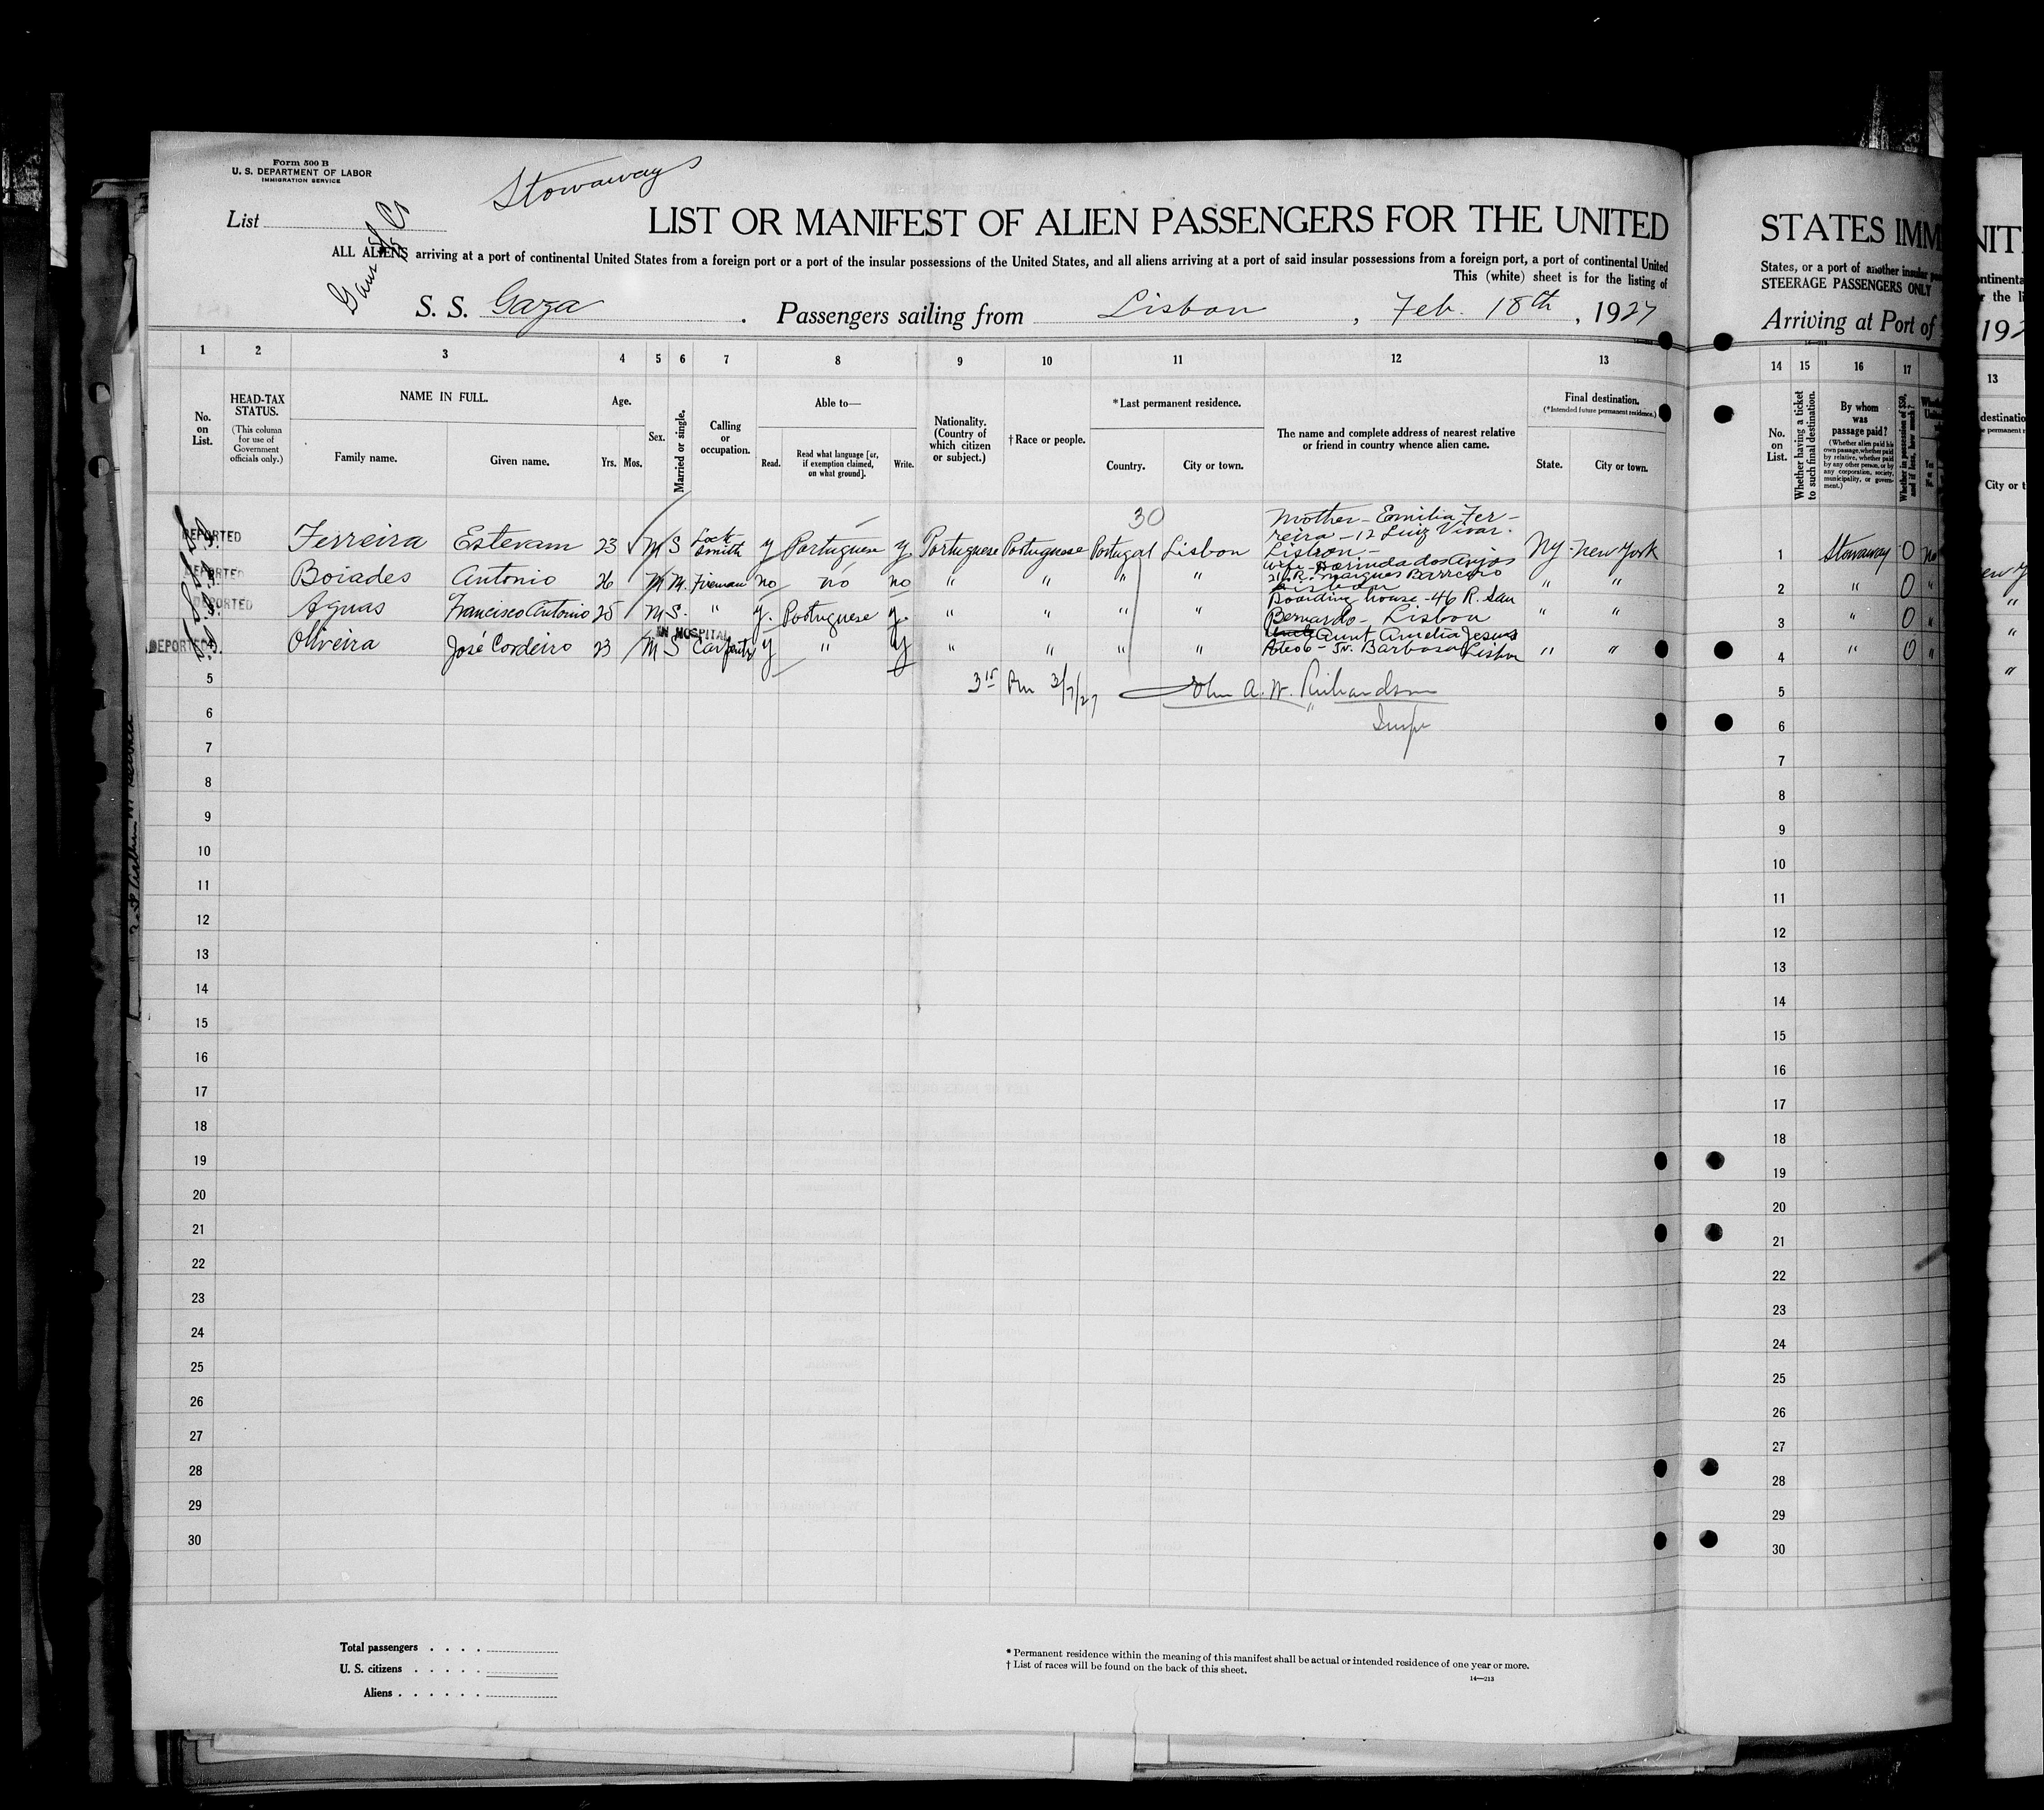 Form 500 B
U. S. DEPARTMENT OF LABOR
IMMIGRATION SERVICE
Stowaways
List
LIST OR MANIFEST OF ALIEN PASSENGERS FOR THE UNITED
ALL ALIENS arriving at a port of continental United States from a foreign port or a port of the insular possessions of the United States, and all aliens arriving at a port of said insular possessions from a foreign port, a port of continental United
This (white) sheet is for the listing of
S. S. Gaza . Passengers sailing from Lisbon , Feb. 18th , 1927
1 2 3 4 5 6 7 8 9 10 11 12 13
No. on List.
HEAD-TAX STATUS.
(This column for use of Government officials only.)
NAME IN FULL.
Family name. Given name.
Age.
Yrs. Mos.
Sex.
Married or single.
Calling or occupation.
Able to—
Read. Read what language [or, if exemption claimed, on what ground]. Write.
Nationality. (Country of which citizen or subject.)
† Race or people.
*Last permanent residence.
Country. City or town.
The name and complete address of nearest relative or friend in country whence alien came.
Final destination.
(*Intended future permanent residence.)
State. City or town.
30
DEPORTED Ferreira Estevam 23 M S Lock smith y Portuguese y Portuguese Portuguese Portugal Lisbon Mother - Emilia Fer-
reira - 12 Luiz Vivar. Lisbon - NY - New York
DEPORTED Boiades Antonio 26 M M. Fireman no no no " " " " Wife - dos Anjos
R. Marques Barreiro Lisbon " "
DEPORTED Aguas Francisco Antonio 25 M S. " y. Portuguese y. " " " " Boarding house - 46 R. San
Bernardo - Lisbon " "
IN HOSPITAL
DEPORTED 4 Oliveira José Cordeiro 23 M S Carpenter y " y " " " " Aunt Amelia Jesus
Barbosa Lisbon " "
5 3 15 Pm 3/7/27 John A. W. Richardson
6 Insp
7
8
9
10
11
12
13
14
15
16
17
18
19
20
21
22
23
24
25
26
27
28
29
30
Total passengers . . . .
U. S. citizens . . . . .
Aliens . . . . . .
* Permanent residence within the meaning of this manifest shall be actual or intended residence of one year or more.
† List of races will be found on the back of this sheet.
14—213
STATES IMM
States, or a port of another insular
STEERAGE PASSENGERS ONLY
Arriving at Port of
14 15 16 17
No. on List.
Whether having a ticket to such final destination.
By whom was passage paid?
(Whether alien paid his own passage, whether paid by relative, whether paid by any other person, or by any corporation, society, municipality, or government.)
Whether in possession of $50, and if less, how much?
1 Stowaway 0 no
2 " 0 "
3 " 0 "
4 " 0 "
5
6
7
8
9
10
11
12
13
14
15
16
17
18
19
20
21
22
23
24
25
26
27
28
29
30
NIT
ntinenta
r the li
192
13
destinatio
City or t